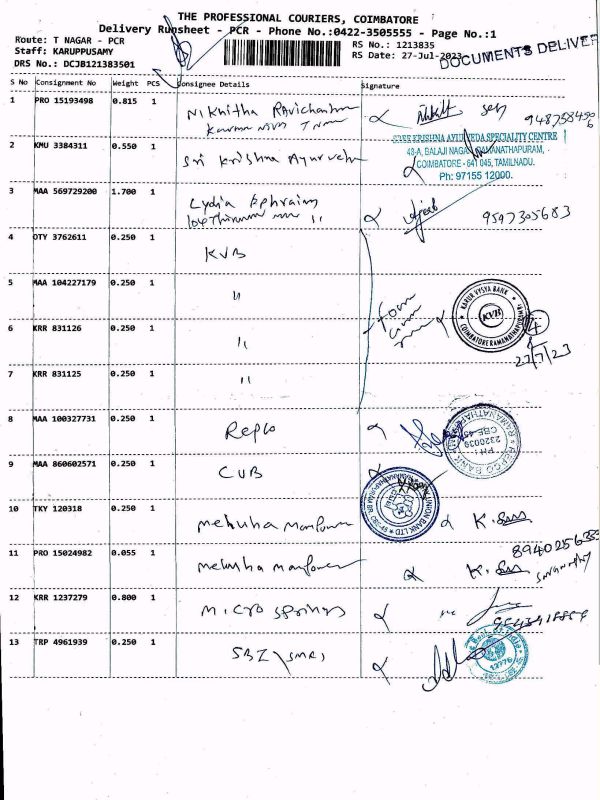 THE PROFESSIONAL COURIERS, COIMBATORE
Delivery Runsheet - PCR - Phone No.:0422-3505555 - Page No.:1
Route: T NAGAR - PCR
Staff: KARUPPUSAMY
DRS No.: DCJB121383501
RS No.: 1213835
RS Date: 27-Jul-2023
DOCUMENTS DELIVER
S No Consignment No Weight PCS Consignee Details Signature
1 PRO 15193498 0.815 1 Nikhitha Ravichandran
9487584506
2 KMU 3384311 0.550 1 Sri Krishna Ayurveda
SREE KRISHNA AYURVEDA SPECIALITY CENTRE
48-A, BALAJI NAGAR, RAMANATHAPURAM,
COIMBATORE - 641 045, TAMILNADU.
Ph: 97155 12000.
3 MAA 569729200 1.700 1 Lydia Ephraim
9597305683
4 OTY 3762611 0.250 1 KVB
5 MAA 104227179 0.250 1 "
KARUR VYSYA BANK
KVB
COIMBATORE RAMANATHAPURAM
4
6 KRR 831126 0.250 1 "
27/7/23
7 KRR 831125 0.250 1 "
8 MAA 100327731 0.250 1 Repco
REPCO BANK
RAMANATHAPURAM
CBE-45
PH: 2320039
9 MAA 860602571 0.250 1 CUB
UNION BANK LTD
10 TKY 120318 0.250 1 mekuha manpower K.
11 PRO 15024982 0.055 1 mekuha manpower K.
12 KRR 1237279 0.800 1 Micro springs
13 TRP 4961939 0.250 1 SBI